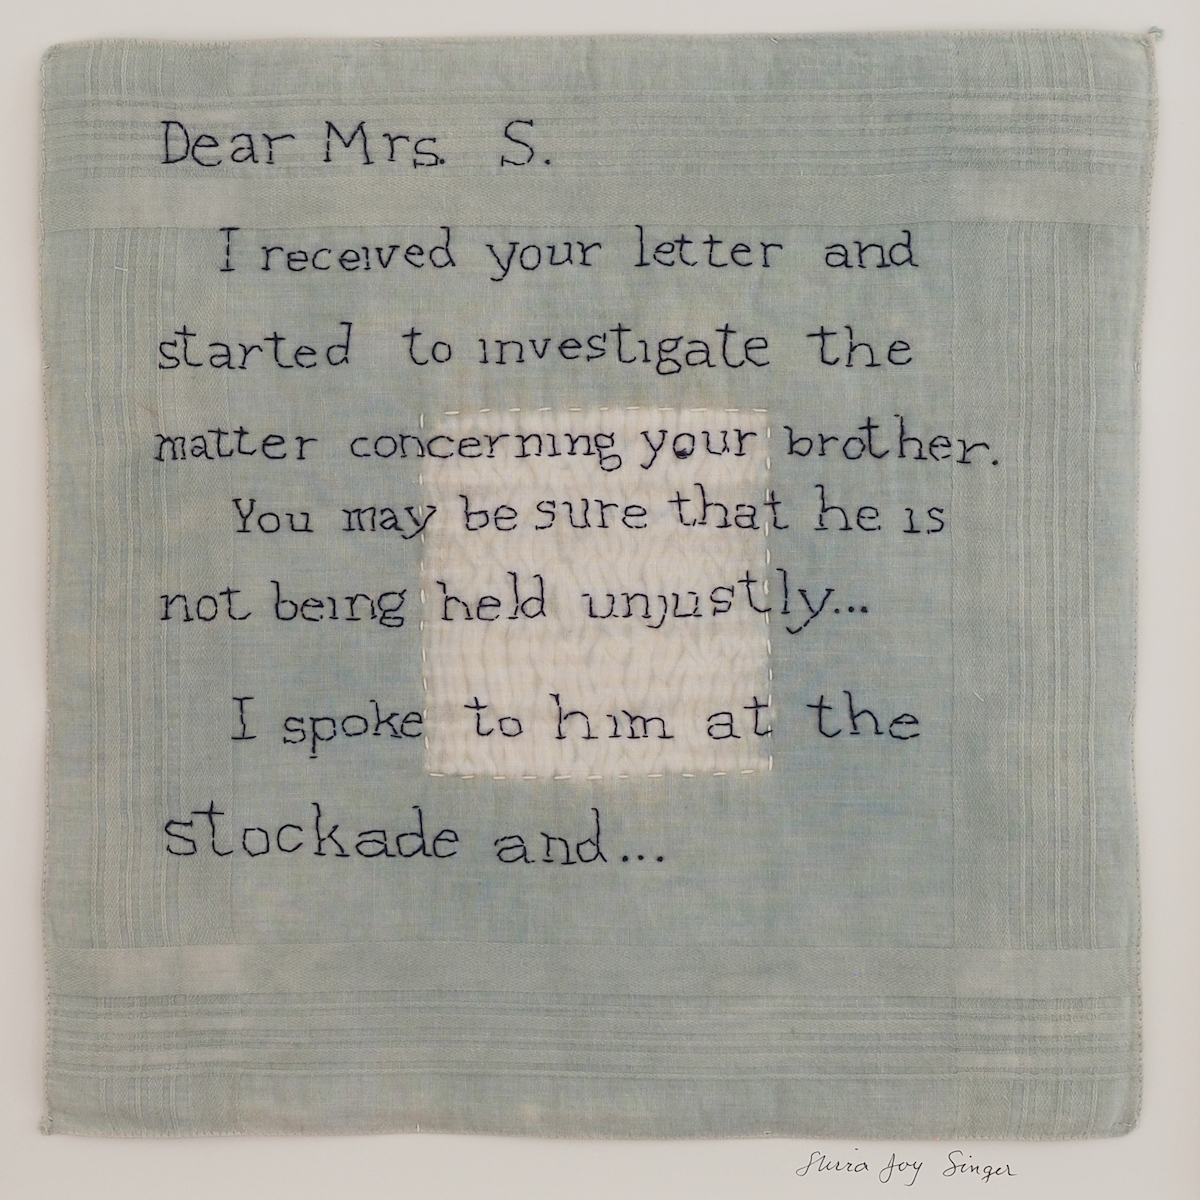 Dear Mrs. S.
I received your letter and
started to investigate the
matter concerning your brother.
You may be sure that he is
not being held unjustly...
I spoke to him at the
stockade and...
Joy Singer